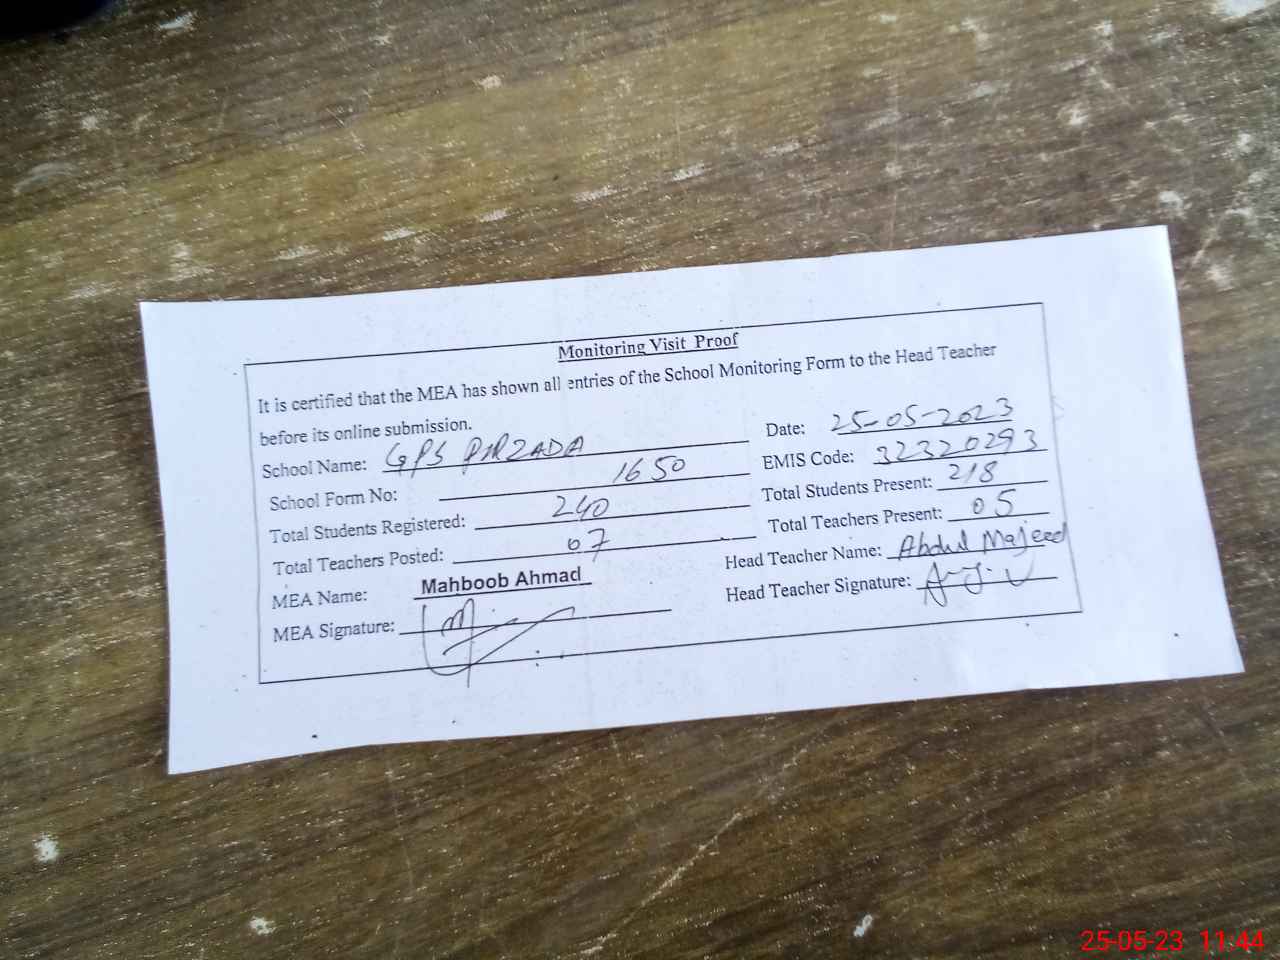 Monitoring Visit Proof
It is certified that the MEA has shown all entries of the School Monitoring Form to the Head Teacher
before its online submission.
Date: 25-05-2023
School Name: GPS PIRZADA
EMIS Code: 32320293
School Form No: 1650
Total Students Present: 218
Total Students Registered: 240
Total Teachers Present: 05
Total Teachers Posted: 07
Head Teacher Name: Abdul Majeed
MEA Name: Mahboob Ahmad
Head Teacher Signature:
MEA Signature:
25-05-23 11:44